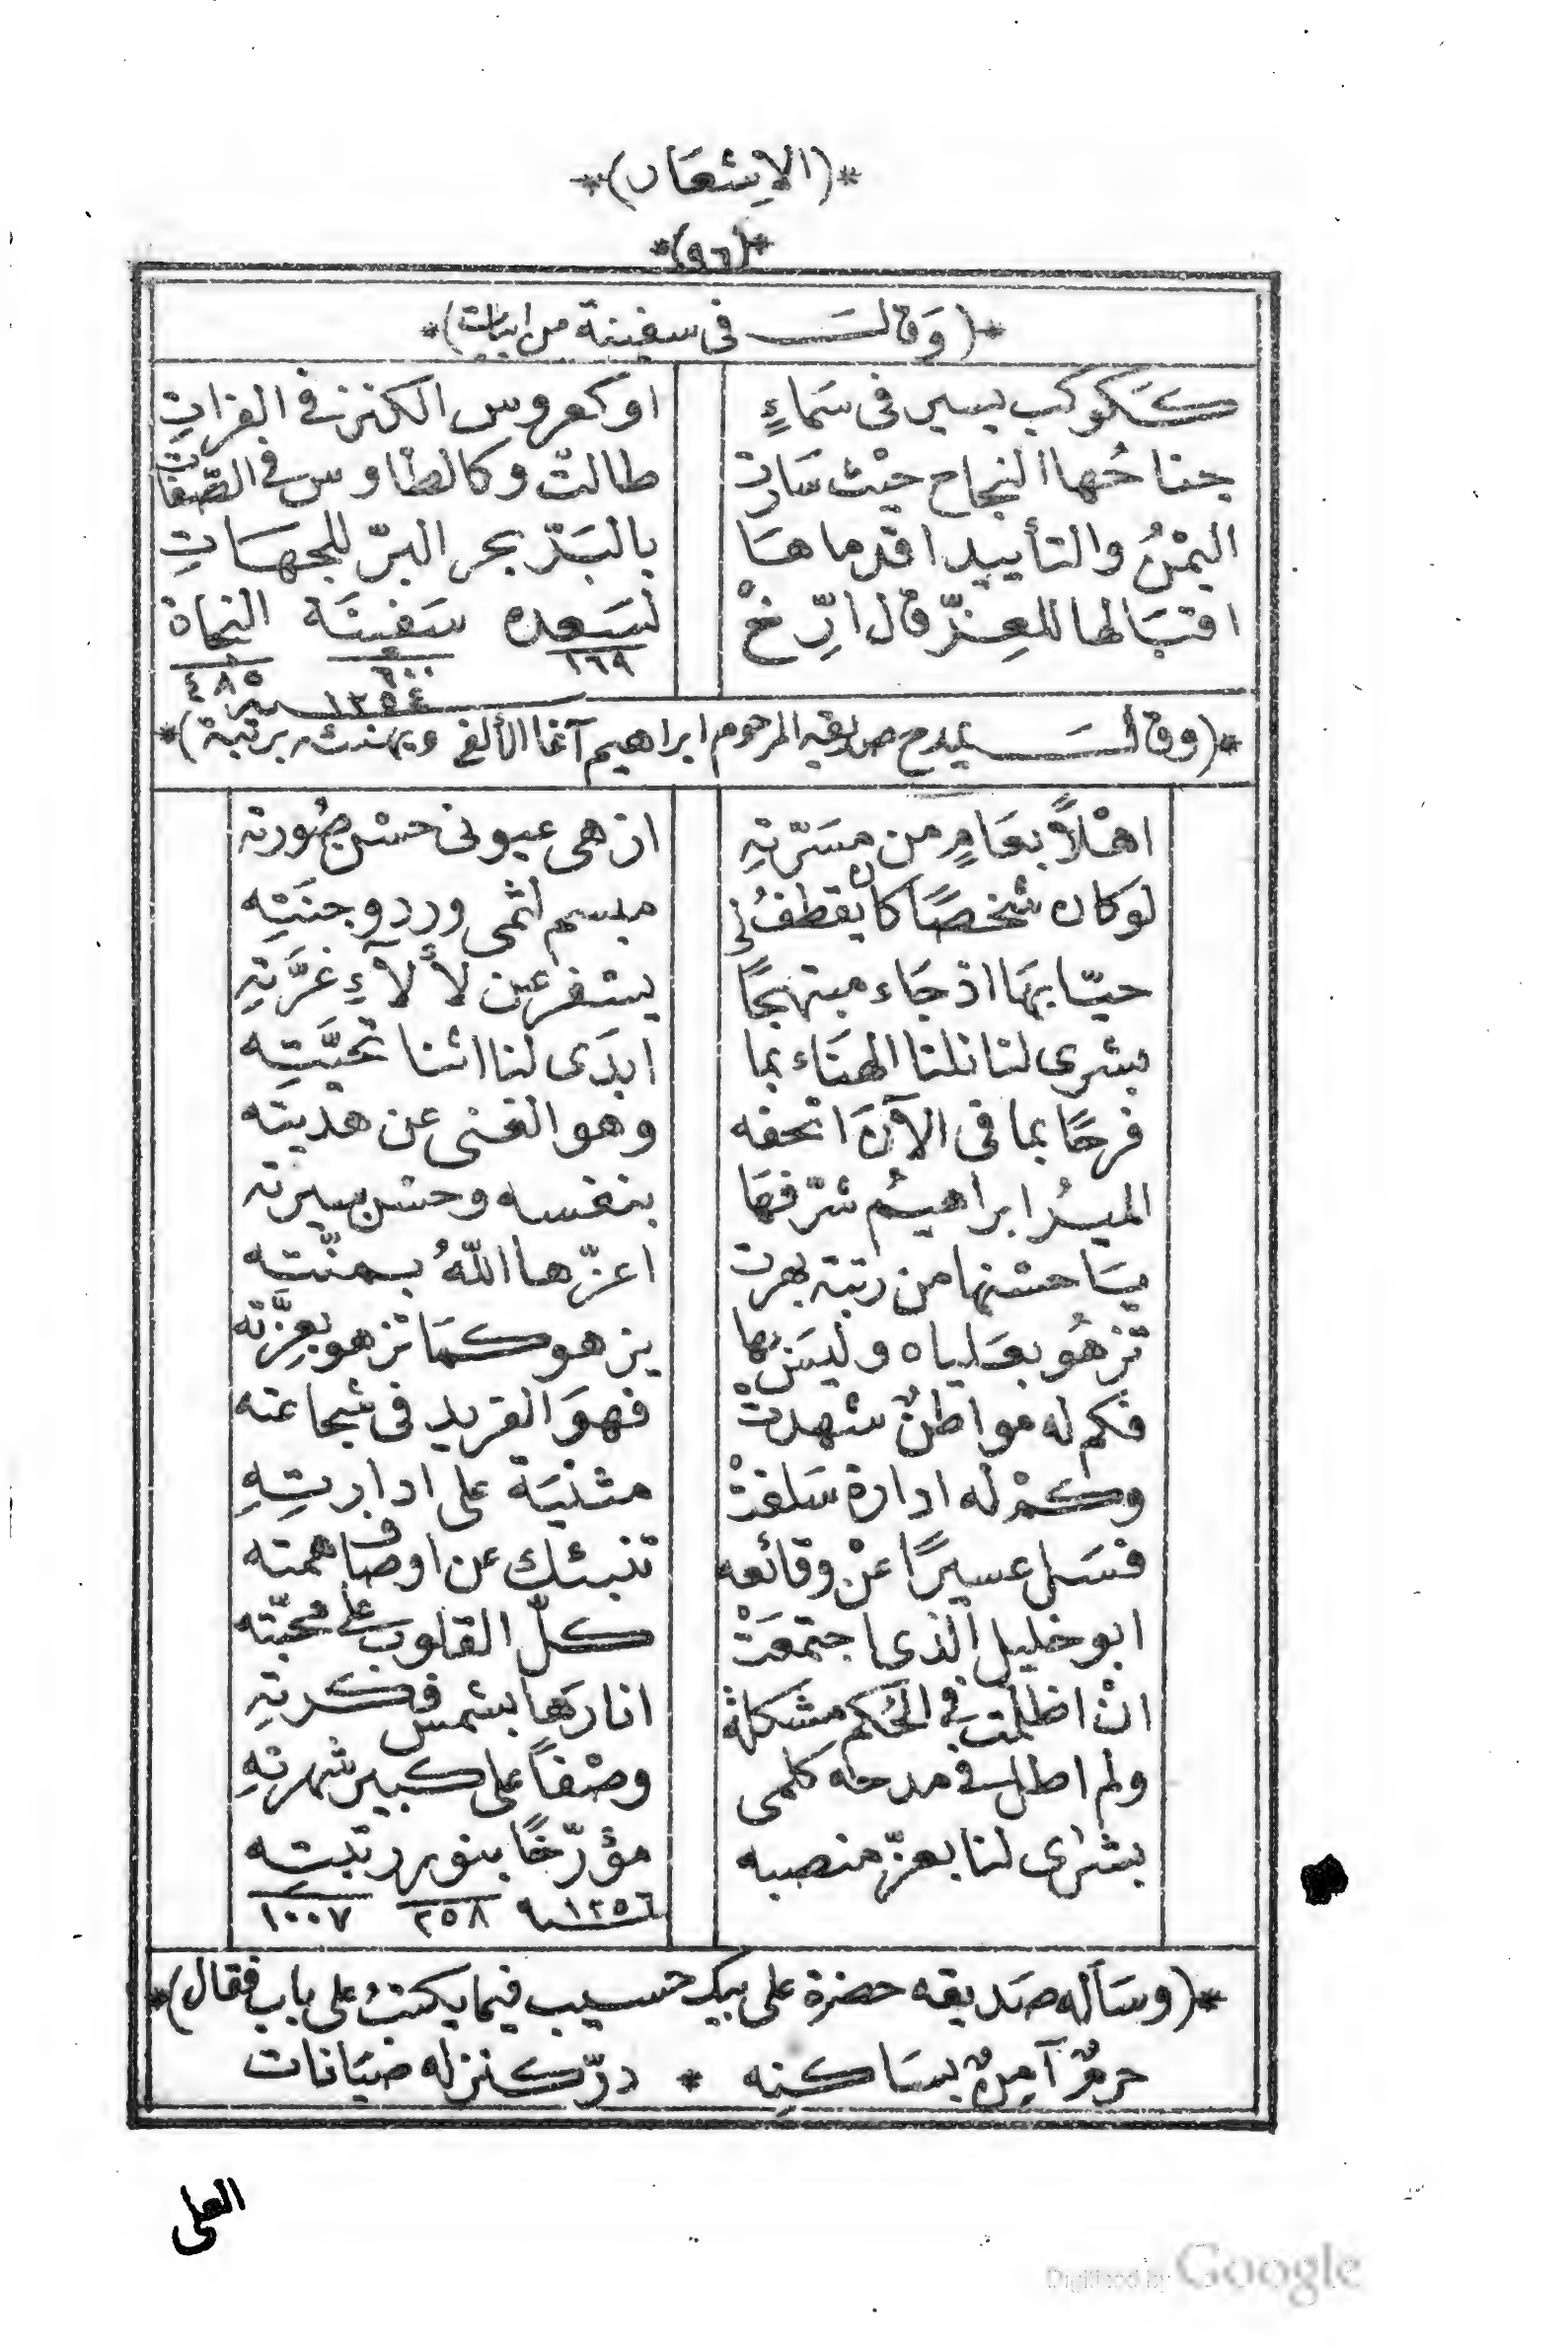 *(الاشعار)*
*(٩٦)*
*(وَقالَ في سفينة من ابيات)*
كَكوكب يسير في سَماءٍ او كعروس الكنز في الفراتِ
جناحُها النجاح حيْث سَارت طالت وكالطاوس في الصّفات
اليمْنُ والتأييد اقدماهَا بالبَرّ بحر البرّ للجهَاتِ
اقبَالها للعِزّ قال ارِّخْ لسَعده سَفينَة النجاة
١٦٩ ٦٠٠ ٤٨٥
سنة ١٢٥٤
*(وقالَ يمدح صديقه المرحوم ابراهيم آغا الألفي ويهنئه برتبة)*
اهْلاً بعَامٍ من مسَرّتهِ ازهى عيونى حسْن صُورته
لوكان شخصًا كان يقطفُ لى مبسم لثمى ورد وجنَتِه
حيّا بهَا اذ جَاء مبتهجًا يسْفر عن لألآءِ غرَّتهِ
بشرى لنا نلنا الهنَاء بما ابدَى لنا اثنا تحيَّتِه
فرحًا بما فى الآنَ اتْحفه وهو الغنى عن هديته
الميرُ ابراهيمُ شرّفهَا بنفسه وحسْن سيرته
يَا حسْنها من رتبة بهرت اعزّها اللّهُ بمنّته
تزهُو بعَلياه وليسَ بها يزهو كمَا تزهو بعِزَّته
فكم له مواطنٌ شهدتْ فهوَ الفريد فى شجاعته
وكمْ له ادارة سَلفتْ مثنيَة على ادارتِهِ
فسَل عسيرًا عنْ وقائعه تنبئك عن اوصاف همته
ابو خليل الذى اجتمعَتْ كلّ القلوب على محبّته
انْ اظلمت في الحُكم مشكلة انارَها بشمس فكرتهِ
ولم اطل في مدحه كلمى وصْفاً على كبير شهرتهِ
بشرٰى لنا بعزّ منصبه مؤرّخًا بنور رتبتِه
سنة ١٢٥٦ ٢٥٨ ١٠٠٧
*(وسَأله صَديقه حضرة على بيك حسيب فيما يكتبُ على باب فقال)*
حرمٌ آمِنٌ بسَاكنِه * درّ كنز له ضيَانات
العلى
Digitized by Google